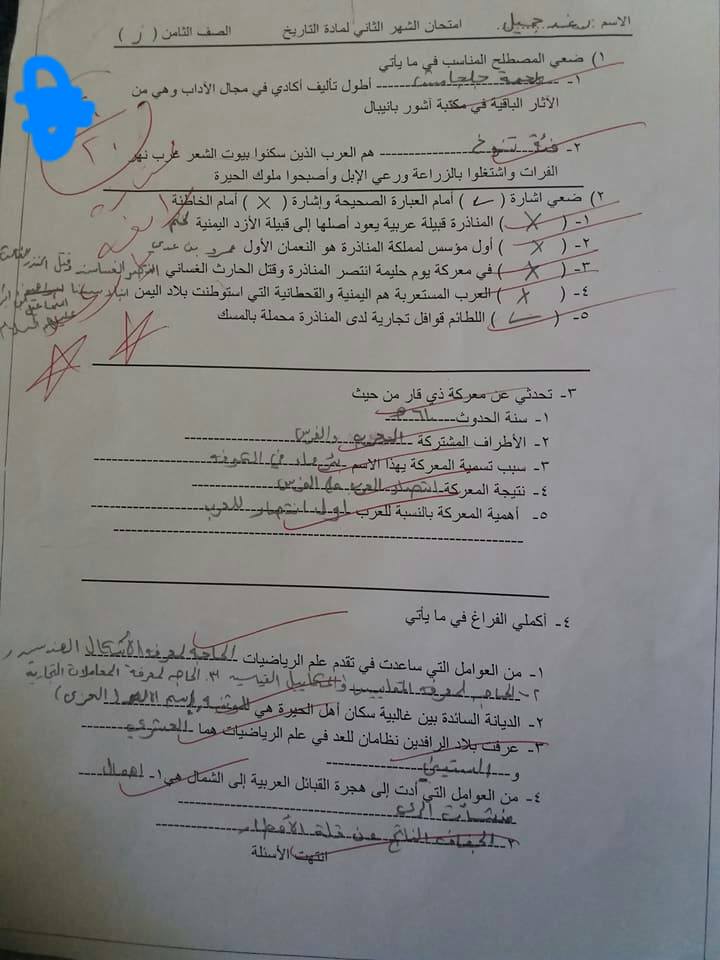 الاسم: رغد جميل امتحان الشهر الثاني لمادة التاريخ الصف الثامن ( ز )
١) ضعي المصطلح المناسب في ما يأتي
١- ملحمة جلجامش أطول تأليف أكادي في مجال الآداب وهي من
الآثار الباقية في مكتبة آشور بانيبال
٢- تنوخ هم العرب الذين سكنوا بيوت الشعر غرب نهر
الفرات واشتغلوا بالزراعة ورعي الإبل وأصبحوا ملوك الحيرة
٢) ضعي اشارة ( ✓ ) أمام العبارة الصحيحة وإشارة ( X ) أمام الخاطئة
١- ( X ) المناذرة قبيلة عربية يعود أصلها إلى قبيلة الأزد اليمنية لخم
٢- ( X ) أول مؤسس لمملكة المناذرة هو النعمان الأول عمرو بن عدي
٣- ( X ) في معركة يوم حليمة انتصر المناذرة وقتل الحارث الغساني
٤- ( X ) العرب المستعربة هم اليمنية والقحطانية التي استوطنت بلاد اليمن
٥- ( ✓ ) اللطائم قوافل تجارية لدى المناذرة محملة بالمسك
٣- تحدثي عن معركة ذي قار من حيث
١- سنة الحدوث
٢- الأطراف المشتركة العرب والفرس
٣- سبب تسمية المعركة بهذا الاسم
٤- نتيجة المعركة انتصار العرب على الفرس
٥- أهمية المعركة بالنسبة للعرب اول انتصار للعرب
٤- أكملي الفراغ في ما يأتي
١- من العوامل التي ساعدت في تقدم علم الرياضيات الحاجة لمعرفة الأشكال الهندسية
٢- الحاجة لمعرفة المقاييس والمكاييل ٣. الحاجة لمعرفة المعاملات التجارية
٢. الديانة السائدة بين غالبية سكان أهل الحيرة هي الوثنية (العزى)
٣- عرفت بلاد الرافدين نظامان للعد في علم الرياضيات هما العشري
و الستيني
٤- من العوامل التي أدت إلى هجرة القبائل العربية إلى الشمال هي ١- اهمال
منشآت الري
٢- الجفاف الناتج عن قلة الأمطار
انتهت الأسئلة